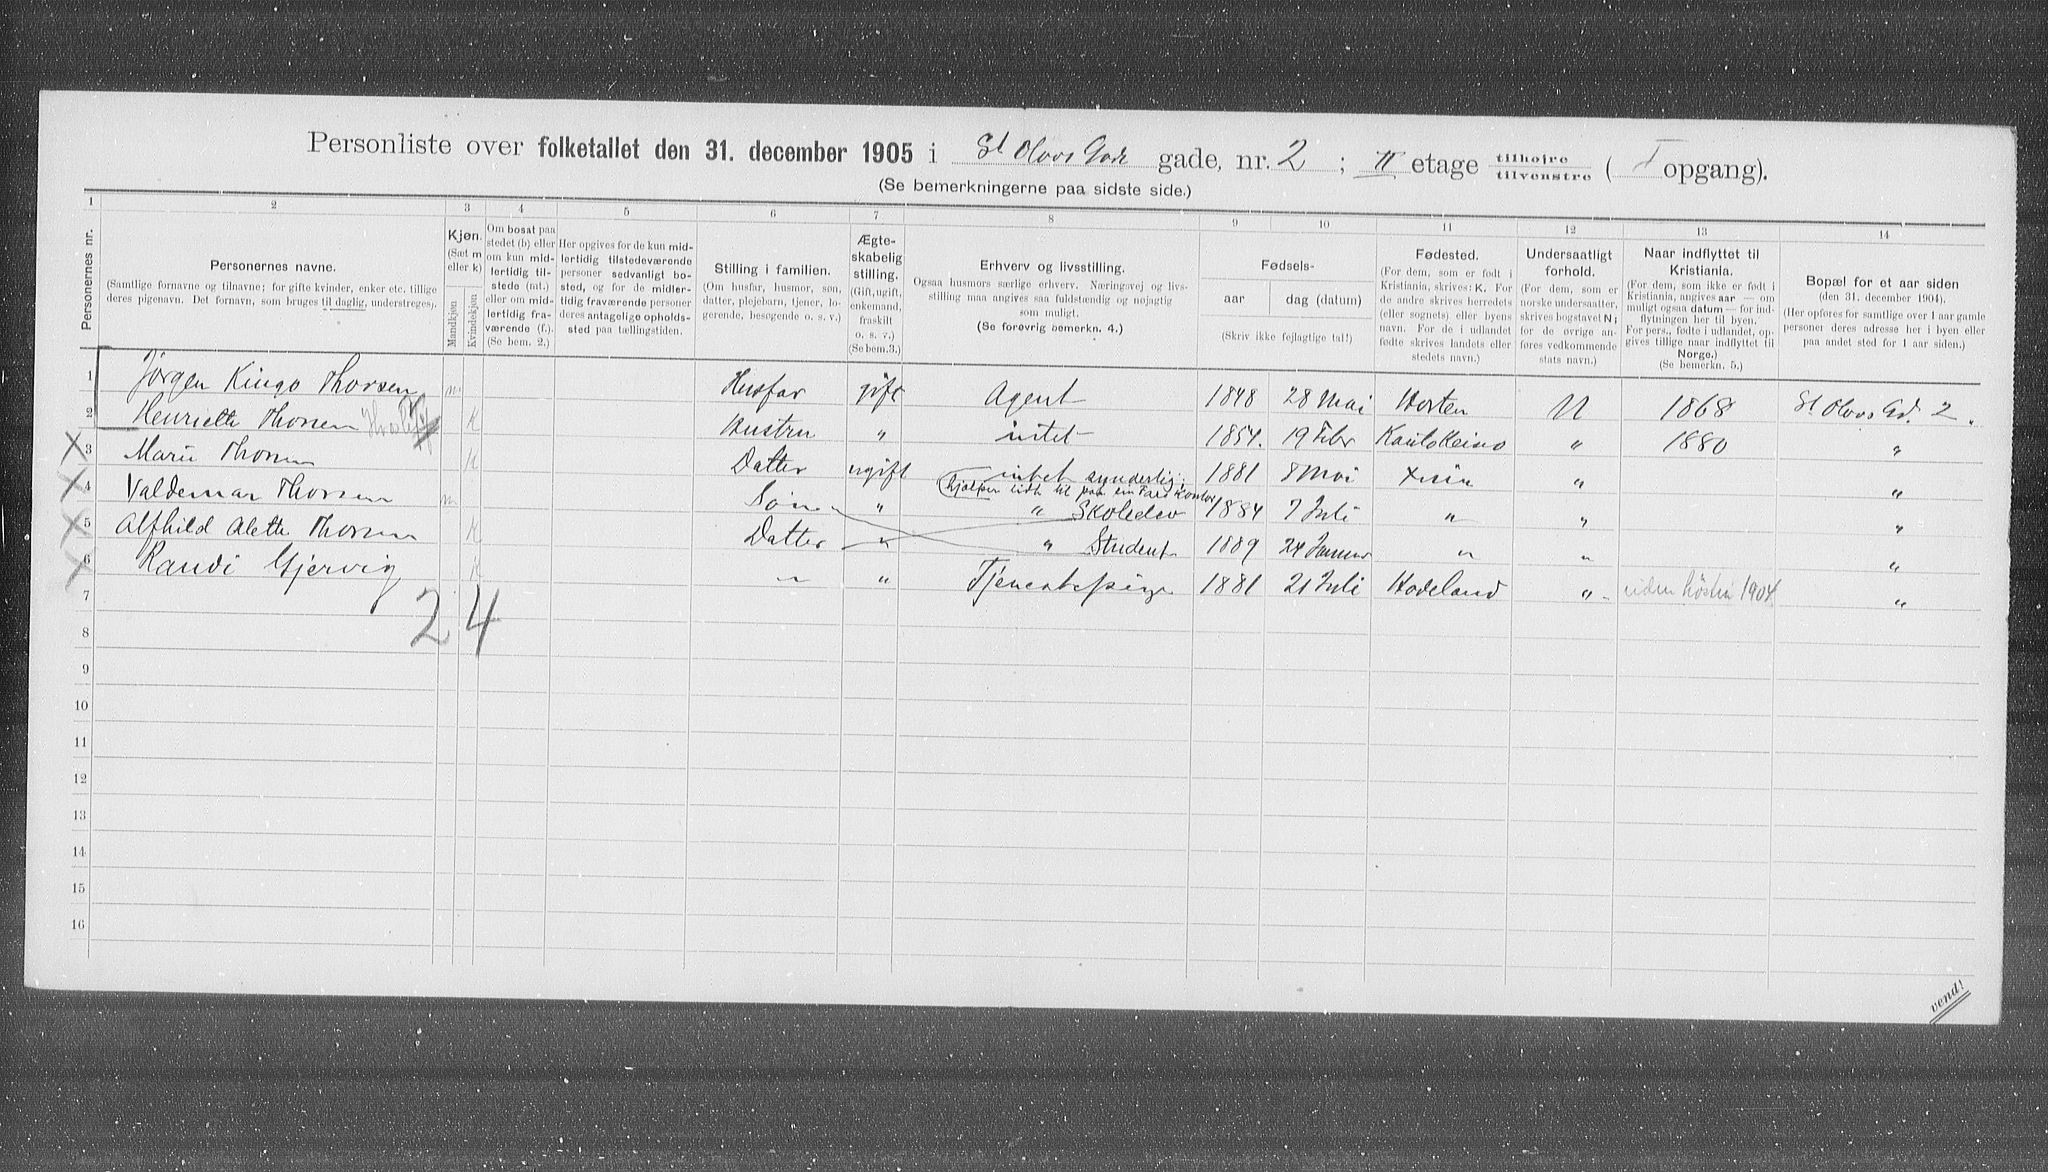 Personliste over folketallet den 31. december 1905 i St Olavs Gade gade, nr. 2 ; II etage tilhøire tilvenstre ( I opgang).
(Se bemerkningerne paa sidste side.)
1 2 3 4 5 6 7 8 9 10 11 12 13 14
Personernes nr.
Personernes navne.
(Samtlige fornavne og tilnavne; for gifte kvinder, enker etc. tillige deres pigenavn. Det fornavn, som bruges til daglig, understreges).
Kjøn.
(Sæt m eller k)
Mandkjøn
Kvindekjøn
Om bosat paa stedet (b) eller om kun midlertidig tilstede (mt.) eller om midlertidig fraværende (f.).
(Se bem. 2.)
Her opgives for de kun midlertidig tilstedeværende personer sedvanligt bosted, og for de midlertidig fraværende personer deres antagelige opholdssted paa tællingstiden.
Stilling i familien.
(Om husfar, husmor, søn, datter, plejebarn, tjener, logerende, besøgende o. s. v.)
Ægteskabelig stilling.
(Gift, ugift, enkemand, fraskilt o. s. v.)
(Se bem. 3.)
Erhverv og livsstilling.
Ogsaa husmors særlige erhverv. Næringsvej og livsstilling maa angives saa fuldstændig og nøjagtig som muligt.
(Se forøvrig bemerkn. 4.)
Fødsels-
aar
dag (datum)
(Skriv ikke fejlagtige tal!)
Fødested.
(For dem, som er født i Kristiania, skrives: K. For de andre skrives herredets (eller sognets) eller byens navn. For de i udlandet fødte skrives landets eller stedets navn.)
Undersaatligt forhold.
(For dem, som er norske undersaatter, skrives bogstavet N; for de øvrige anføres vedkommende stats navn.)
Naar indflyttet til Kristiania.
(For dem, som ikke er født i Kristiania, angives aar — om muligt ogsaa datum — for indflytningen her til byen. For pers., fødte i udlandet, opgives tillige naar indflyttet til Norge.)
(Se bemerkn. 5.)
Bopæl for et aar siden
(den 31. december 1904).
(Her opføres for samtlige over 1 aar gamle personer deres adresse her i byen eller paa andet sted for 1 aar siden.)
1 Jørgen Kingo Thorsen m Husfar gift Agent 1848 28 Mai Horten N 1868 St Olavs Gd. 2.
2 Henriette Thorsen K Hustru " intet 1854. 19 Febr Kautokeino " 1880 "
3 Marie Thorsen K Datter ugift intet synderlig; 1881 8 Mai " "
(hjælper lidt til paa sin Fars Kontor
4 Valdemar Thorsen m Søn " " Skoleelev 1884 7 Juli " " "
5 Alfhild Alette Thorsen K Datter " " Student 1889 24 Januar " " "
6 Randi Gjervig K " " Tjenestepige 1881 21 Juli Hadeland " siden høsten 1904 "
7
2 4
8
9
10
11
12
13
14
15
16
vend!